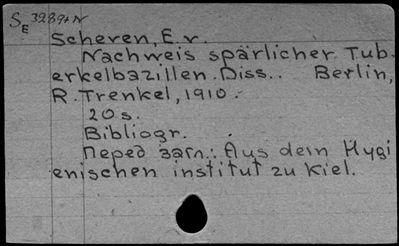 SE 32894 N
Scheren, E. v.
Nachweis spärlicher Tub.
erkelbazillen. Diss.. Berlin,
R. Trenkel, 1910.
20 s.
Bibliogr.
Перед загл.: Aus dem Hygi
enischen institut zu Kiel.